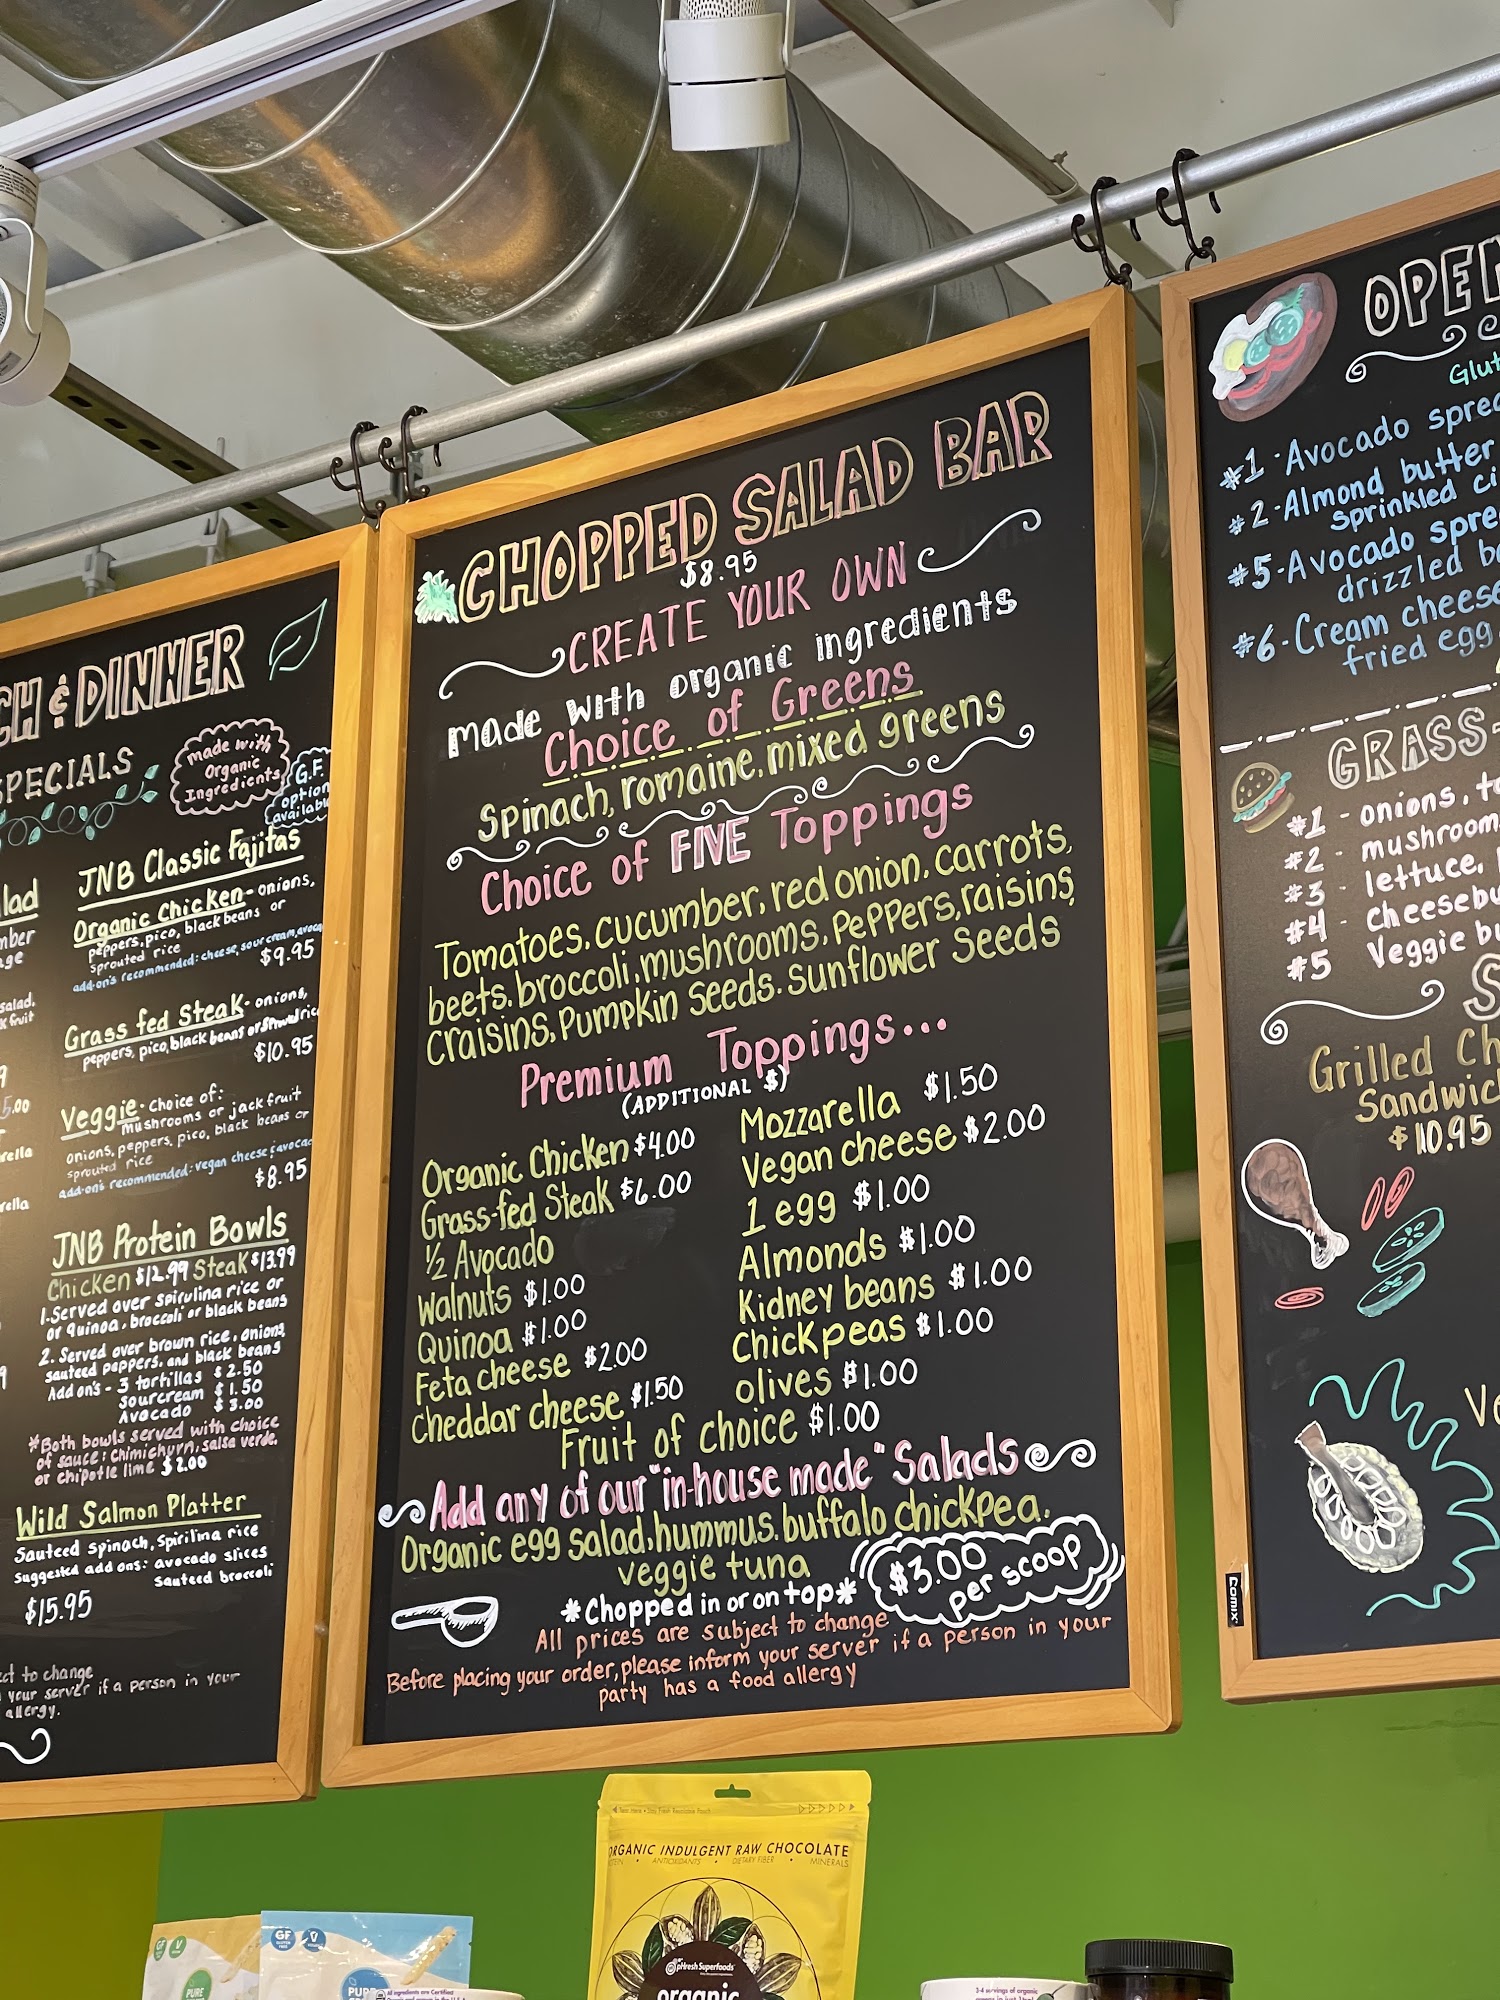 CH & DINNER
SPECIALS
made with
Organic
Ingredients
G.F.
option
available
JNB Classic Fajitas
Organic Chicken - onions,
peppers, pico, black beans or
sprouted rice
add-on's recommended: cheese, sour cream,
$9.95
Grass fed Steak - onions,
peppers, pico, black beans or
$10.95
Veggie - Choice of:
mushrooms or jackfruit
onions, peppers, pico, black beans or
sprouted rice
add-on's recommended: vegan cheese
$8.95
JNB Protein Bowls
Chicken $12.99 Steak $13.99
1. Served over spirulina rice or
or quinoa, broccoli or black beans
2. Served over brown rice, onions,
sauteed peppers, and black beans
Add on's - 3 tortillas $2.50
Sourcream $1.50
Avocado $3.00
*Both bowls served with choice
of sauce: Chimichurri, salsa verde,
or chipotle lime $2.00
Wild Salmon Platter
Sauteed Spinach, Spirilina rice
Suggested add ons: avocado slices
Sauteed broccoli
$15.95
ct to change
your server if a person in your
allergy.
CHOPPED SALAD BAR
$8.95
CREATE YOUR OWN
made with organic ingredients
Choice of Greens
Spinach, romaine, mixed greens
Choice of FIVE Toppings
Tomatoes, cucumber, red onion, carrots,
beets, broccoli, mushrooms, peppers, raisins,
craisins, pumpkin seeds, sunflower seeds
Premium Toppings...
(ADDITIONAL $)
Organic Chicken $4.00
Grass-fed Steak $6.00
½ Avocado
Walnuts $1.00
Quinoa $1.00
Feta cheese $2.00
Cheddar cheese $1.50
Mozzarella $1.50
Vegan cheese $2.00
1 egg $1.00
Almonds $1.00
Kidney beans $1.00
Chickpeas $1.00
olives $1.00
Fruit of choice $1.00
Add any of our "in-house made" Salads
Organic egg salad, hummus, buffalo chickpea,
veggie tuna
*Chopped in or on top*
$3.00
per scoop
All prices are subject to change
Before placing your order, please inform your server if a person in your
party has a food allergy
OPEN
Glut
#1 - Avocado sprea
#2 - Almond butter
Sprinkled ci
#5 - Avocado spre
drizzled ba
#6 - Cream cheese
fried egg
GRASS-
#1 - onions, to
#2 - mushroom
#3 - lettuce,
#4 - cheesebu
#5 Veggie bu
S
Grilled Ch
Sandwic
$10.95
Ve
COMIX
ORGANIC INDULGENT RAW CHOCOLATE
ANTIOXIDANTS • DIETARY FIBER • MINERALS
pHresh Superfoods
organic
GF
V
PURE
GF
V
PURE
3-4 servings of organic